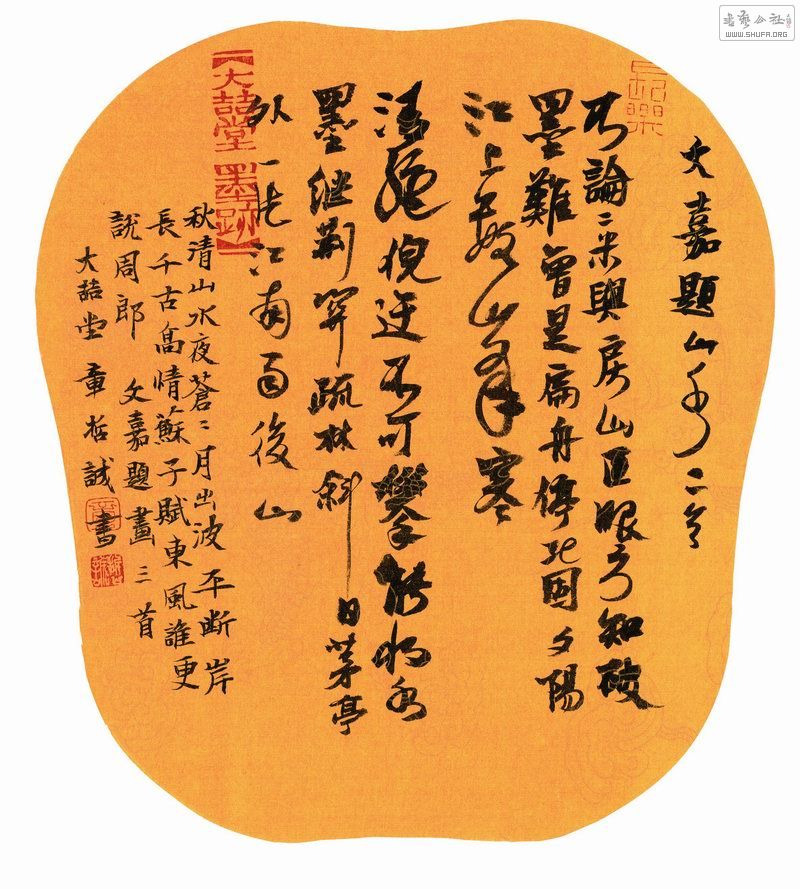 書藝公社
WWW.SHUFA.ORG
文嘉題山水二首
不論二米與房山具眼方知破
墨難曾是扁舟停北固夕陽
江上數峯寒
清絕倪迂不可攀能將水
墨繼荆關疏林斜日茅亭
外一江南雨後山
【大喆堂墨跡】
秋清山水夜蒼〻月出波平斷岸
長千古高情蘇子賦東風誰更
說周郎 文嘉題畫三首
大喆堂章哲誠書